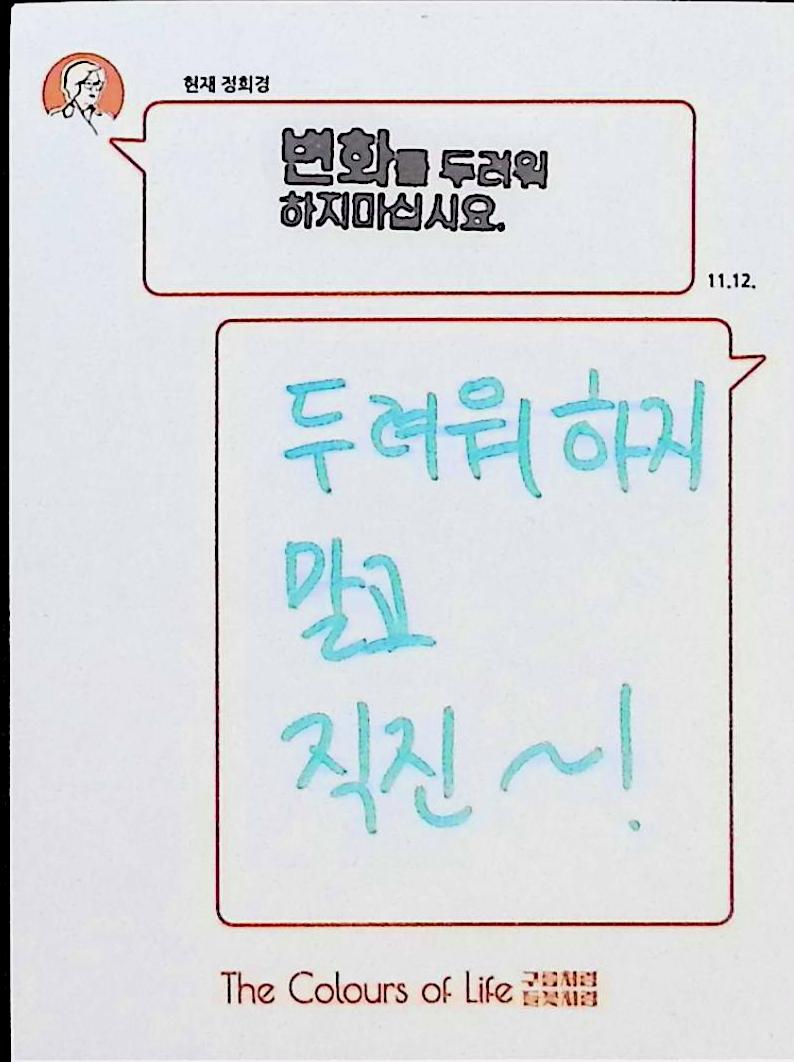 현재 정희경
변화를 두려워
하지마십시요.
11.12.
두려워 하지
말고
직진 ~!
The Colours of Life 구름처럼
들꽃처럼